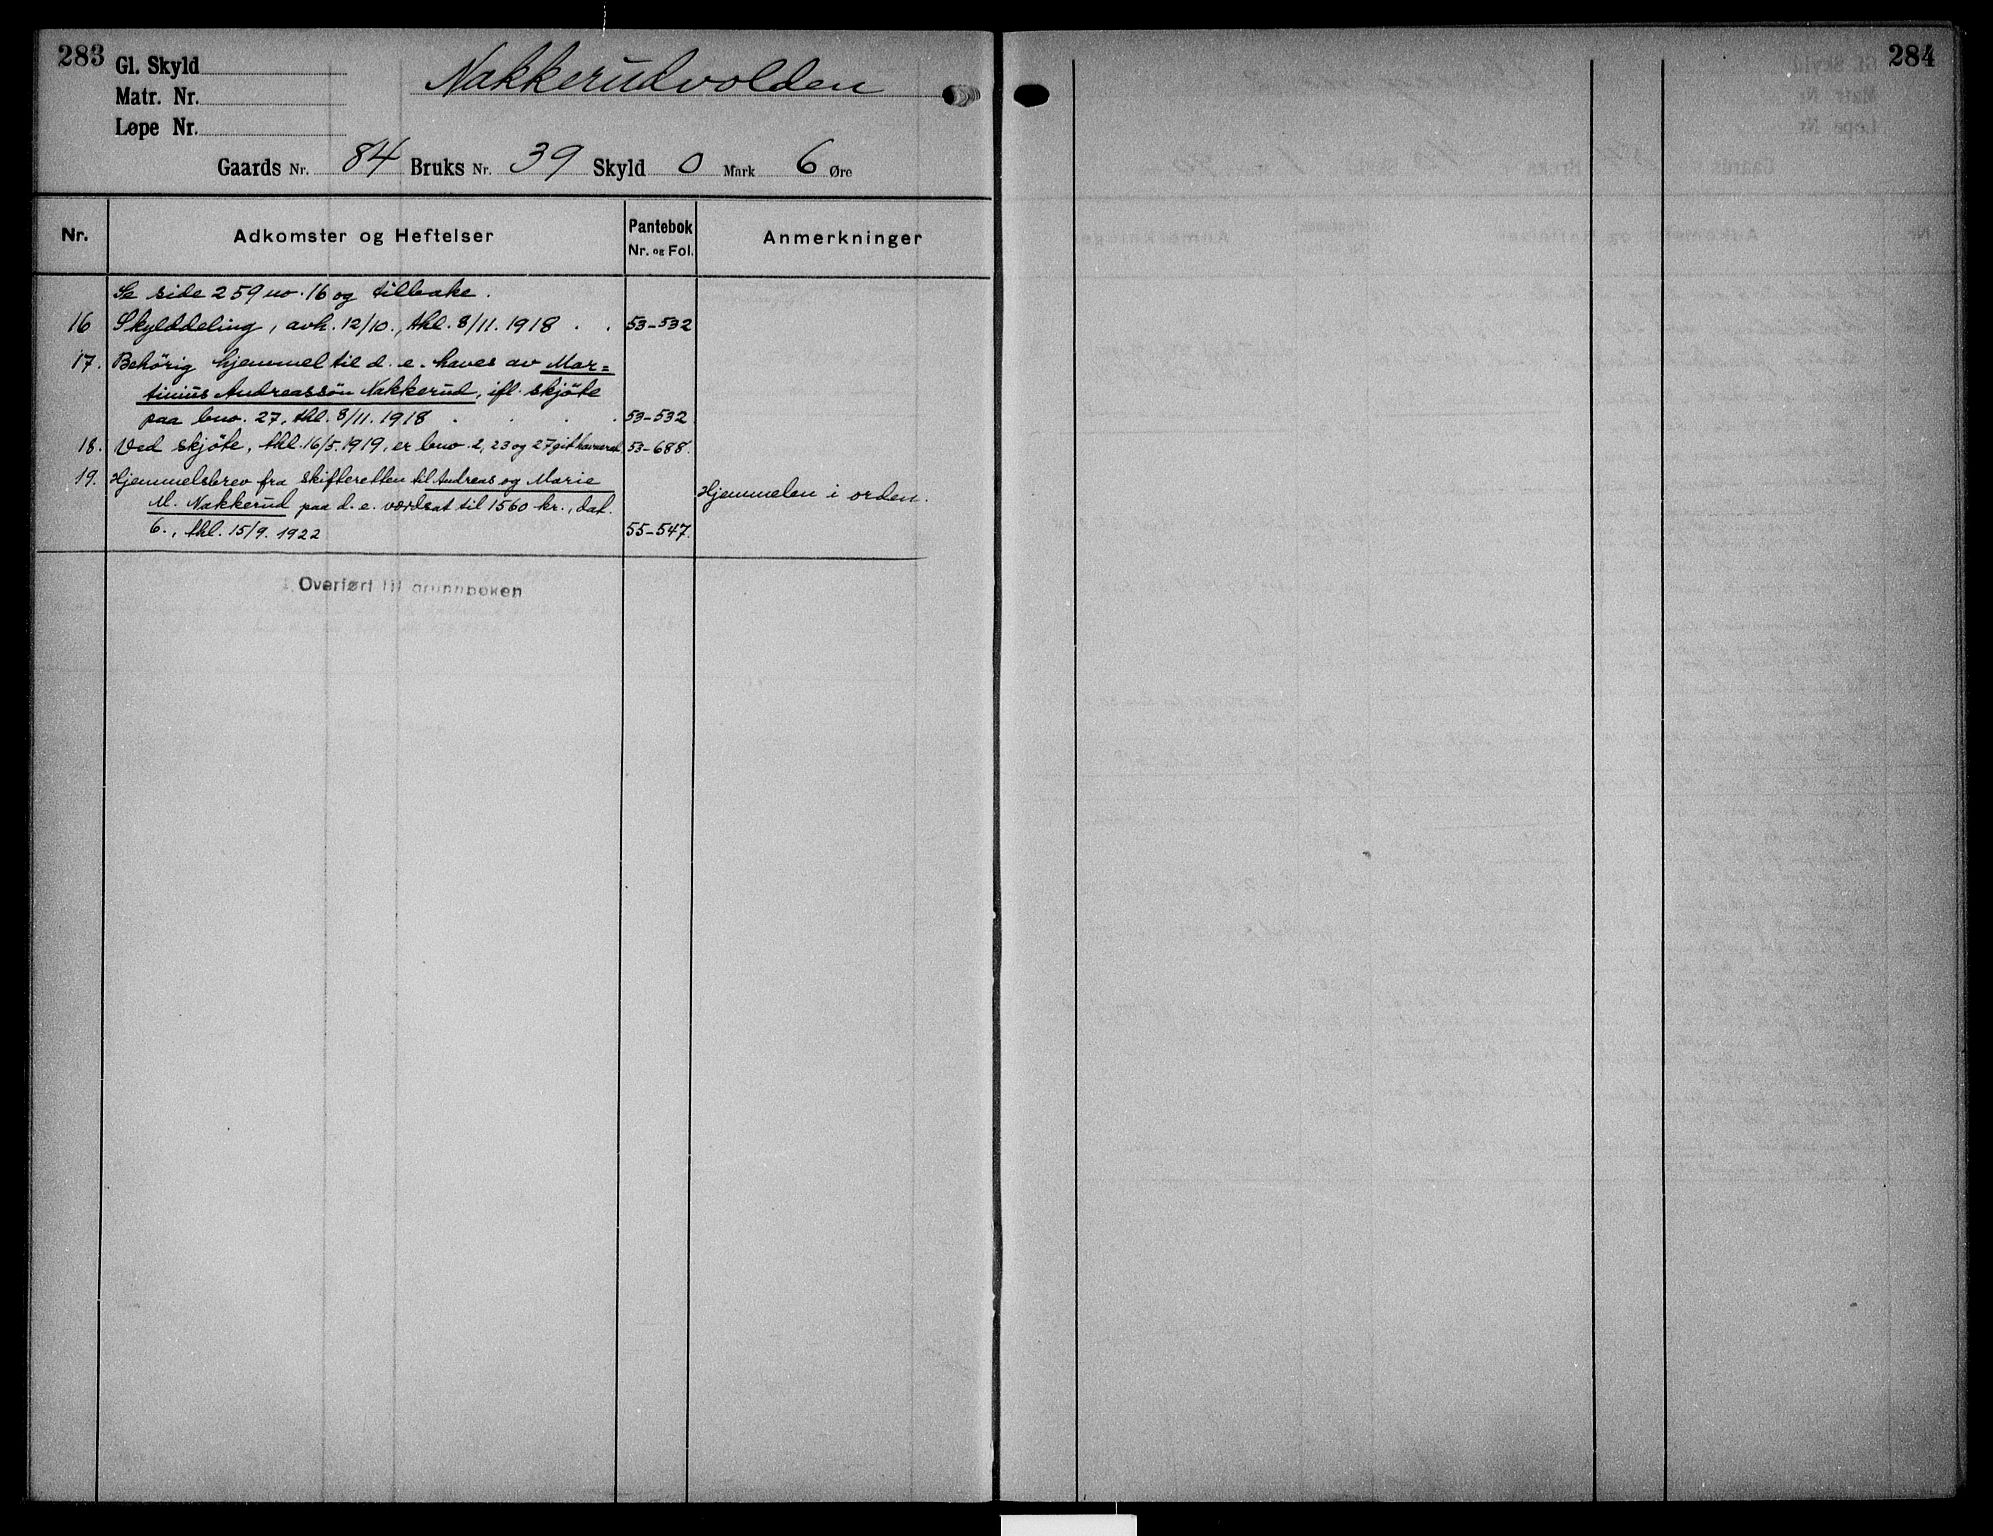 283
Gl. Skyld
Matr. Nr.
Løpe Nr.
Nakkerudvolden
Gaards Nr. 84 Bruks Nr. 39 Skyld 0 Mark 6 Øre
Nr. Adkomster og Heftelser Pantebok Nr. og Fol. Anmerkninger
Se side 259 no. 16 og tilbake.
16 Skylddeling, avh. 12/10., thl. 8/11. 1918 . . 53-532
17. Behørig hjemmel til d. e. haves av Mar=
tinius Andreassøn Nakkerud, ifl. skjøte
paa bno. 27, thl. 8/11. 1918 . . . . 53-532
18. Ved skjøte, thl. 16/5. 1919, er bno. 2, 23 og 27 git havneret. 53-688.
19. Hjemmelsbrev fra skifteretten til Andreas og Marie
M. Nakkerud paa d. e. værdsat til 1560 kr., dat. Hjemmelen i orden.
6., thl. 15/9. 1922 55-547.
Overført til grunnboken
284